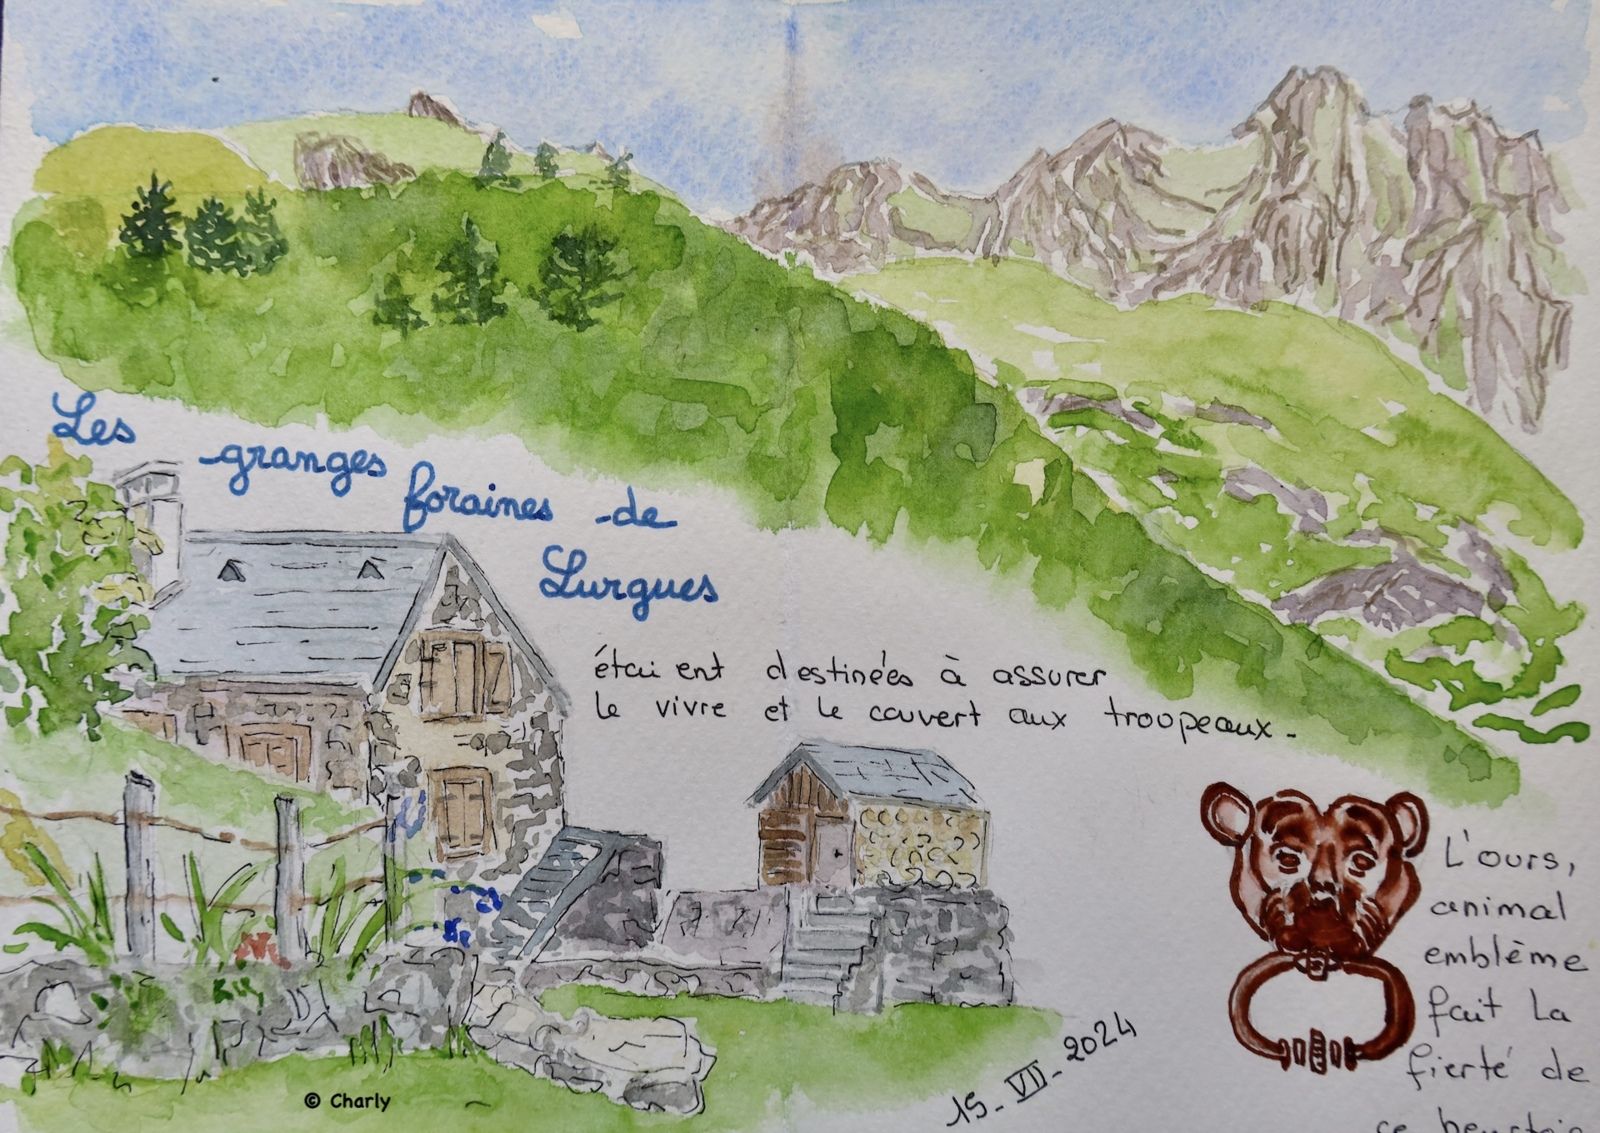 Les
granges
foraines de
Lurgues
étaient destinées à assurer
le vivre et le couvert aux troupeaux.
L'ours,
animal
emblème
fait la
fierté de
ce
15-VII-2024
© Charly